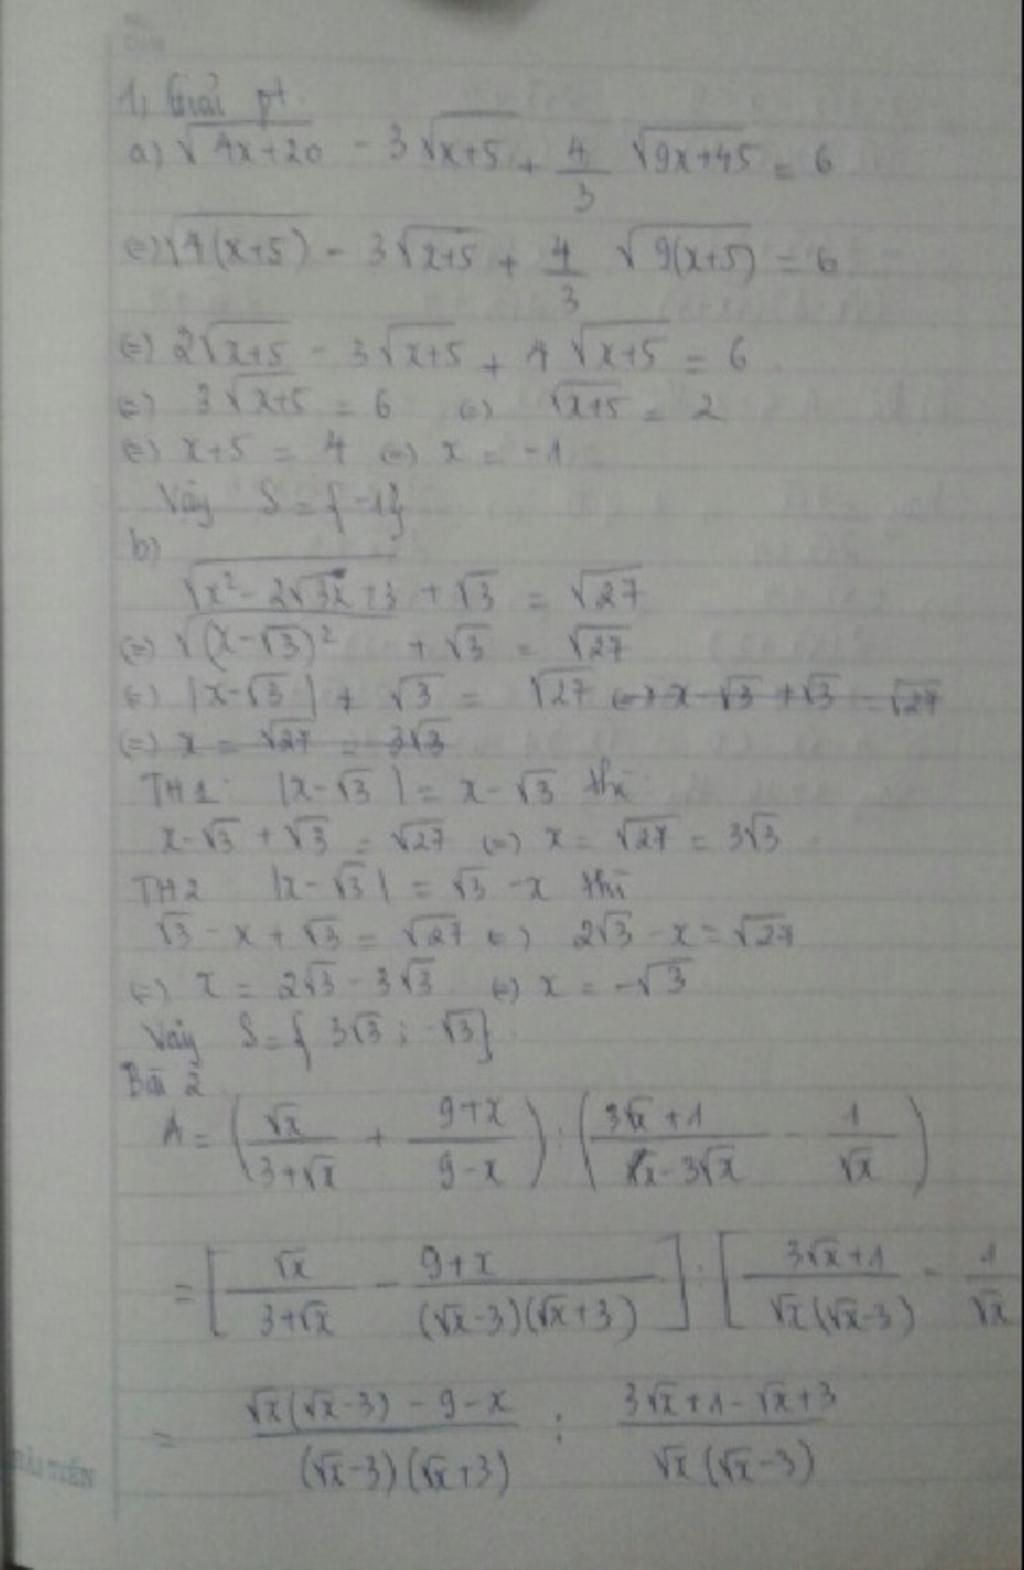 1, Giải pt
a) √(4x+20) - 3√(x+5) + 4/3 √(9x+45) = 6
(=) √(4(x+5)) - 3√(x+5) + 4/3 √(9(x+5)) = 6
(=) 2√(x+5) - 3√(x+5) + 4√(x+5) = 6
(=) 3√(x+5) = 6 (=) √(x+5) = 2
(=) x+5 = 4 (=) x = -1
Vậy S = {-1}
b)
√(x² - 2√3x + 3) + √3 = √27
(=) √((x-√3)²) + √3 = √27
(=) |x-√3| + √3 = √27 (=) x-√3 + √3 = √27
(=) x = √27 = 3√3
TH1: |x-√3| = x-√3 thì
x-√3 + √3 = √27 (=) x = √27 = 3√3
TH2 |x-√3| = √3 -x thì
√3 - x + √3 = √27 (=) 2√3 - x = √27
(=) x = 2√3 - 3√3 (=) x = -√3
Vậy S = { 3√3 ; -√3}
Bài 2
A = (√x/(3+√x) + (9+x)/(9-x)) : ((3√x+1)/(x-3√x) - 1/√x)
= [√x/(3+√x) - (9+x)/((√x-3)(√x+3))] : [(3√x+1)/(√x(√x-3)) - 1/√x
= (√x(√x-3) - 9-x)/((√x-3)(√x+3)) : (3√x+1-√x+3)/(√x(√x-3))
HẢI TIẾN